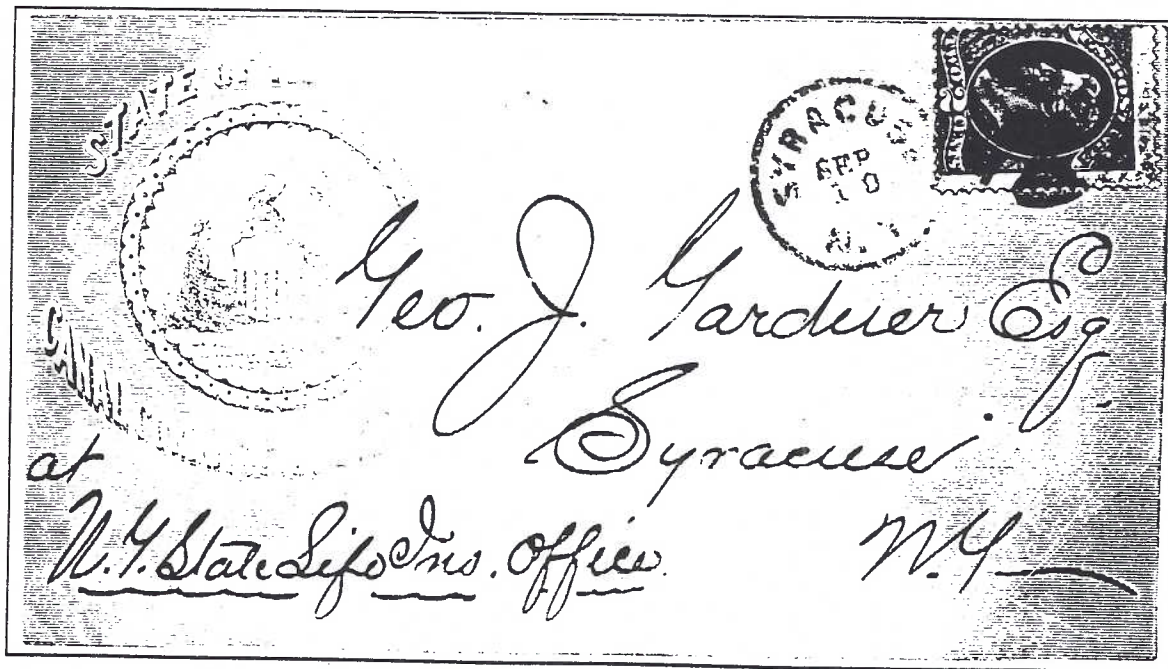 STATE OF
CANAL
SYRACUSE
SEP
10
N.Y.
Geo. J. Gardner Esq.
Syracuse
N.Y.
at
N.Y. State Life Ins. Office.